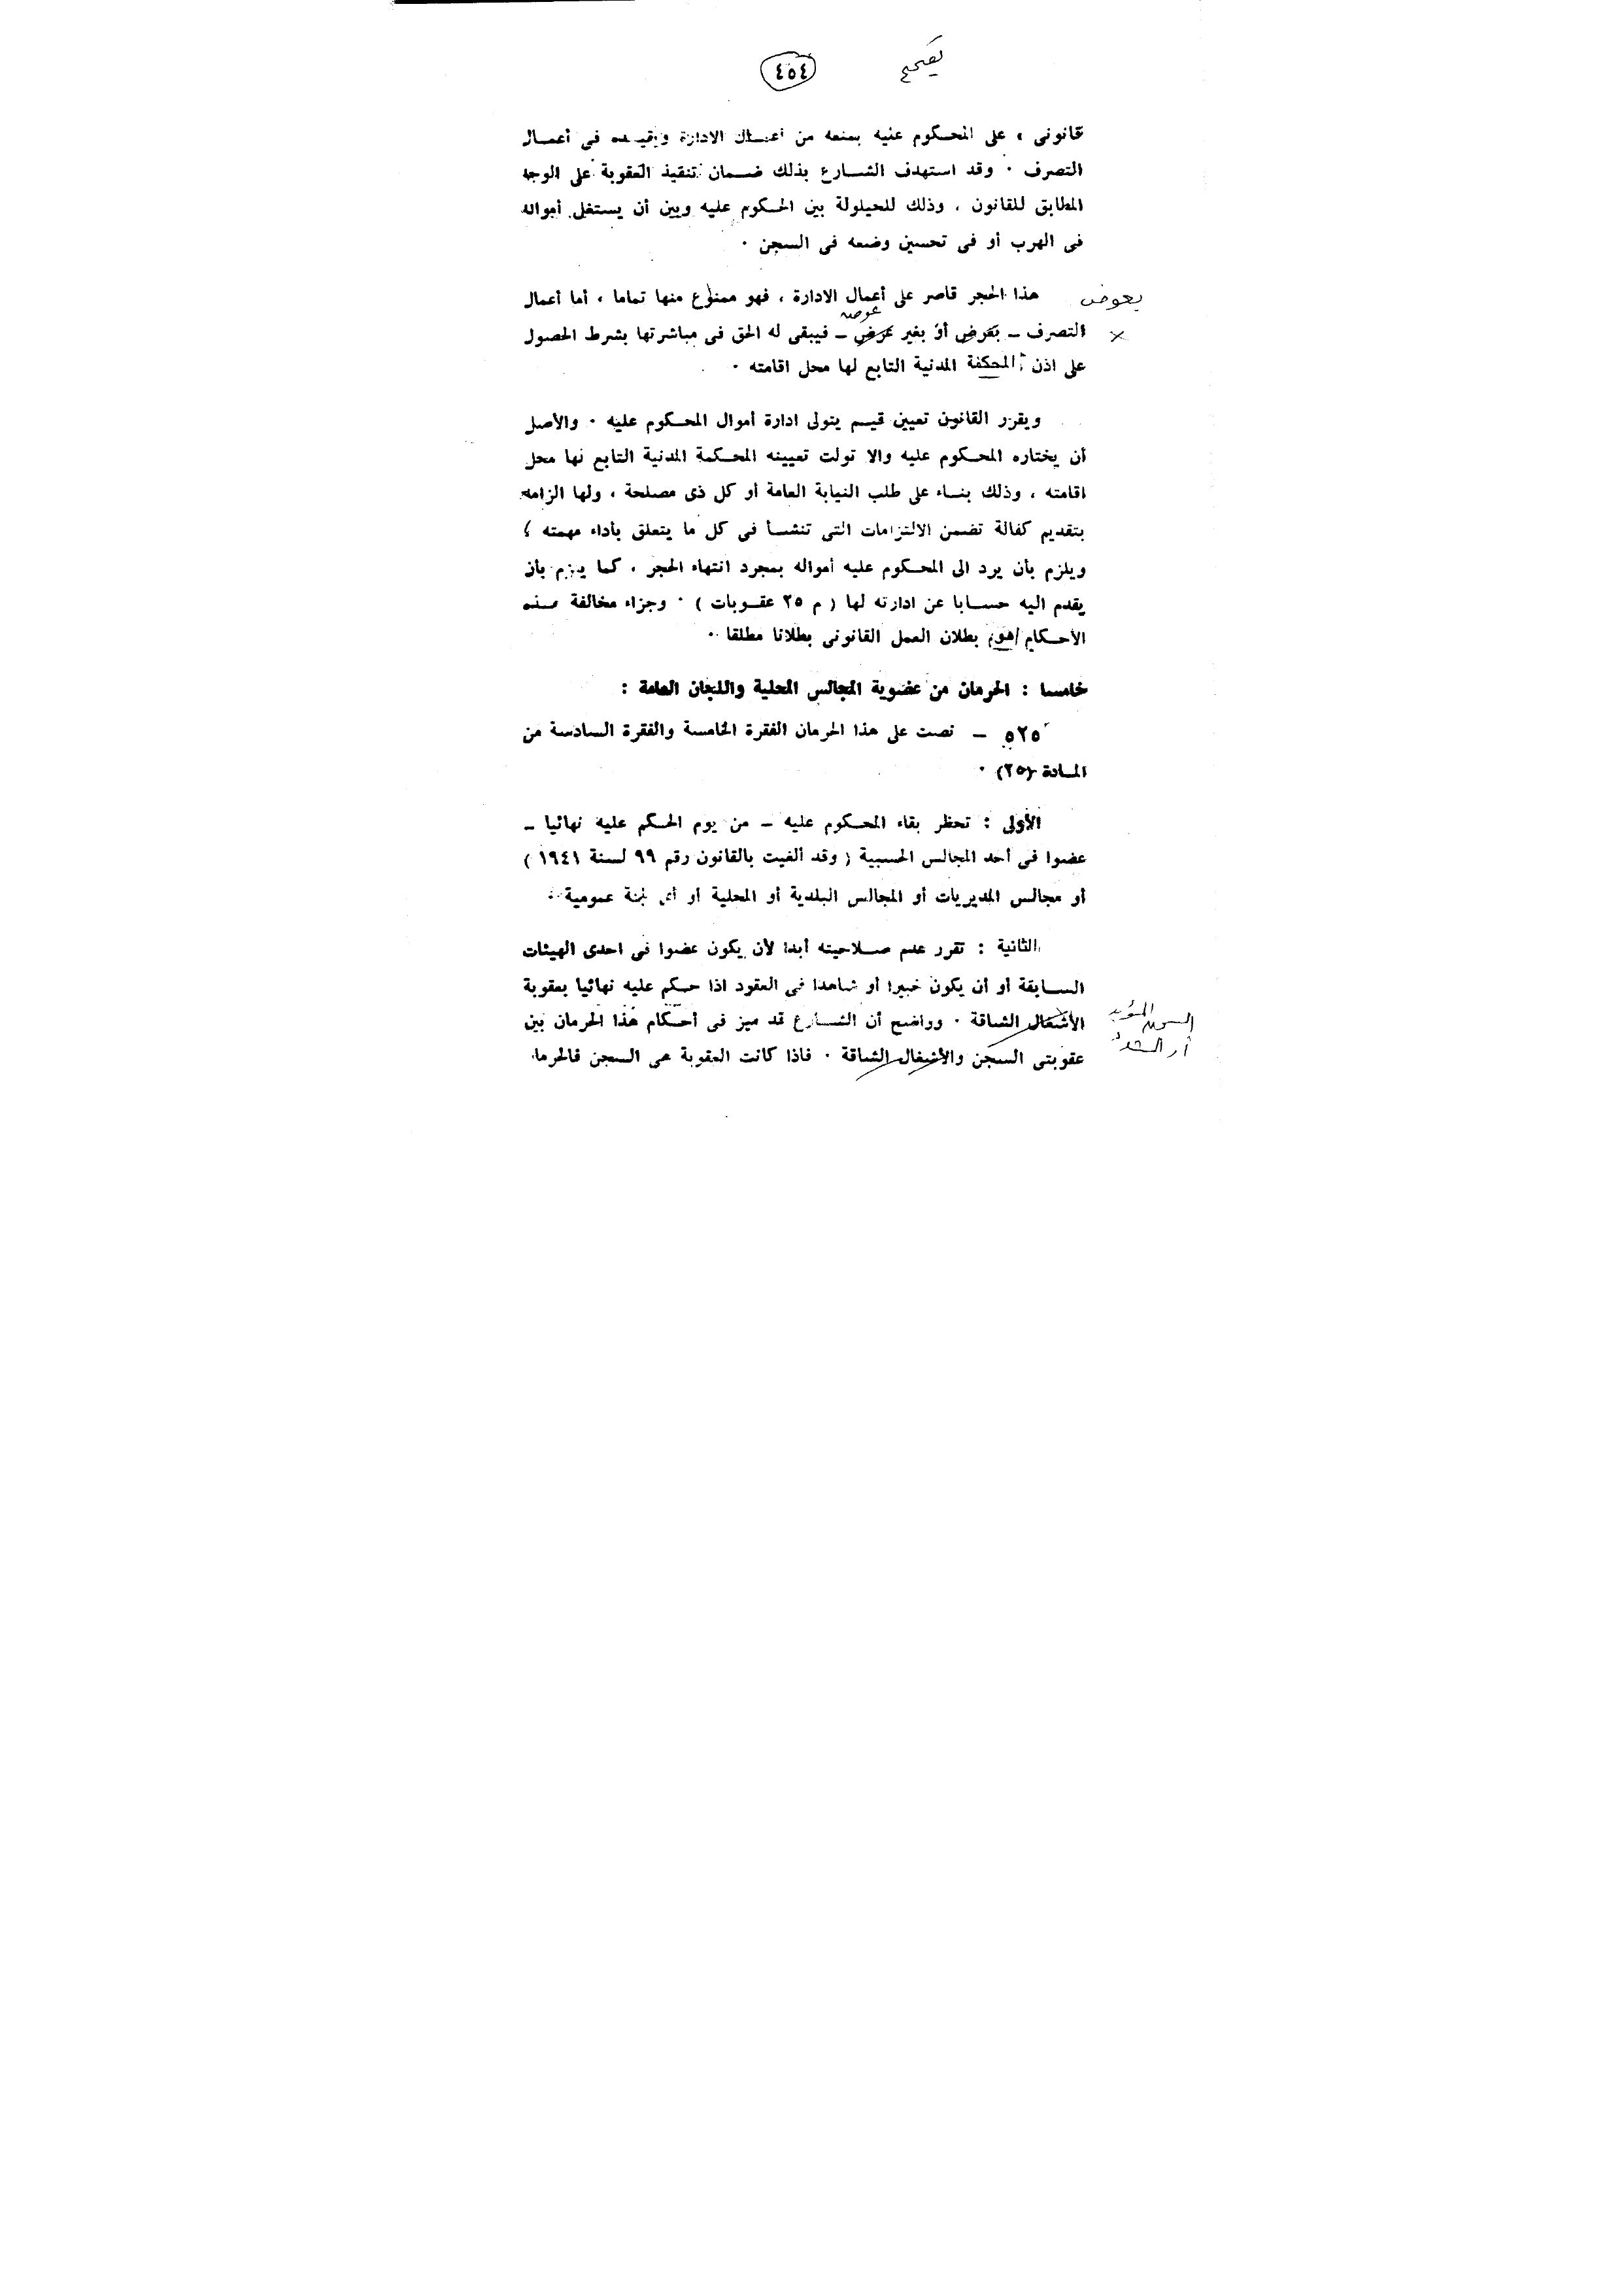 ٤٥٤
قانونى ، على المحكوم عليه بمنعه من أعمال الادارة وبقيده فى أعمال
التصرف · وقد استهدف الشارع بذلك ضمان تنفيذ العقوبة على الوجه
المطابق للقانون ، وذلك للحيلولة بين المحكوم عليه وبين أن يستغل أمواله
فى الهرب أو فى تحسين وضعه فى السجن ·
بعوض
هذا الحجر قاصر على أعمال الادارة ، فهو ممنوع منها تماما ، أما أعمال
عوض
التصرف – بغرض أو بغير غرض – فيبقى له الحق فى مباشرتها بشرط الحصول
على اذن المحكمة المدنية التابع لها محل اقامته ·
ويقرر القانون تعيين قيم يتولى ادارة أموال المحكوم عليه · والأصل
أن يختاره المحكوم عليه والا تولت تعيينه المحكمة المدنية التابع لها محل
اقامته ، وذلك بناء على طلب النيابة العامة أو كل ذى مصلحة ، ولها الزامه
بتقديم كفالة تضمن الالتزامات التى تنشأ فى كل ما يتعلق بأداء مهمته ؛
ويلزم بأن يرد الى المحكوم عليه أمواله بمجرد انتهاء الحجر ، كما يلزم بأن
يقدم اليه حسابا عن ادارته لها ( م ٢٥ عقوبات ) · وجزاء مخالفة هذه
الأحكام هو بطلان العمل القانونى بطلانا مطلقا ·
خامسا : الحرمان من عضوية المجالس المحلية واللجان العامة :
٥٢٥ – نصت على هذا الحرمان الفقرة الخامسة والفقرة السادسة من
المادة (٢٥) ·
الأولى : تحظر بقاء المحكوم عليه – من يوم الحكم عليه نهائيا –
عضوا فى أحد المجالس الحسبية ( وقد ألغيت بالقانون رقم ٩٩ لسنة ١٩٤١ )
أو مجالس المديريات أو المجالس البلدية أو المحلية أو أى لجنة عمومية ·
الثانية : تقرر عدم صلاحيته أبدا لأن يكون عضوا فى احدى الهيئات
السابقة أو أن يكون خبيرا أو شاهدا فى العقود اذا حكم عليه نهائيا بعقوبة
السجن المؤبد
الأشغال الشاقة · وواضح أن الشارع قد ميز فى أحكام هذا الحرمان بين
أو المشدد
عقوبتى السجن والأشغال الشاقة · فاذا كانت العقوبة هى السجن فالحرما